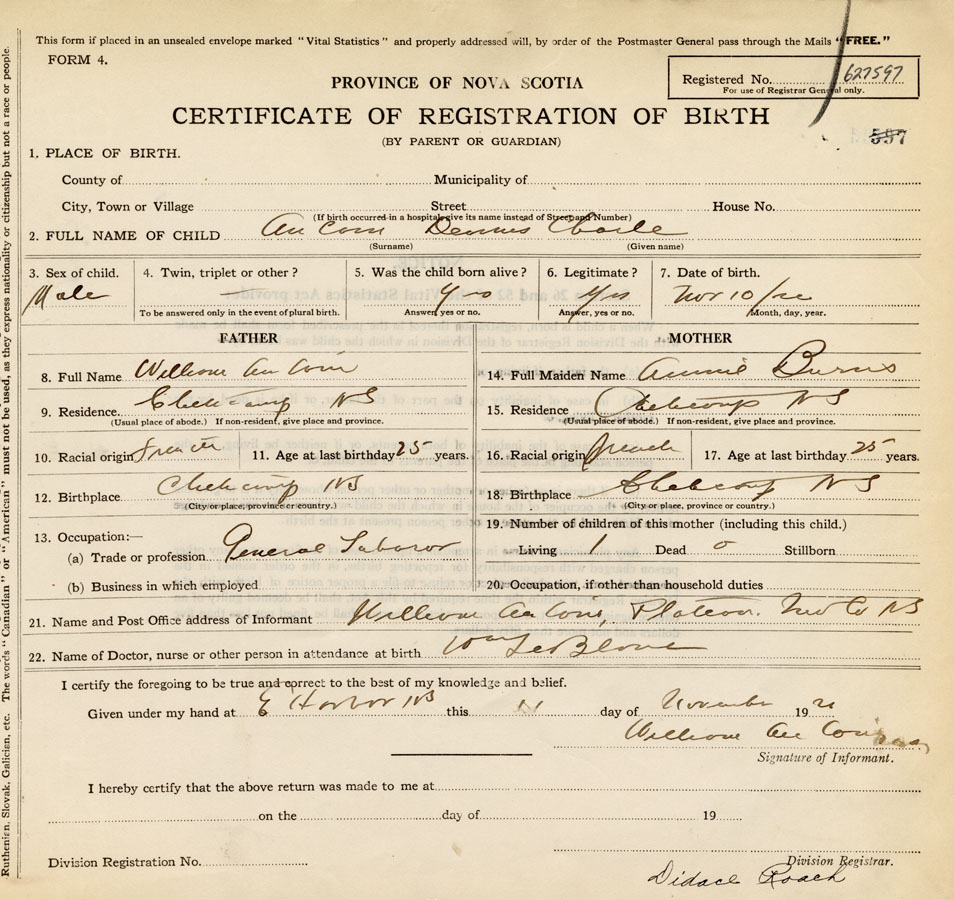 This form if placed in an unsealed envelope marked "Vital Statistics" and properly addressed will, by order of the Postmaster General pass through the Mails "FREE."
FORM 4.
Registered No. 627597
For use of Registrar General only.
PROVINCE OF NOVA SCOTIA
CERTIFICATE OF REGISTRATION OF BIRTH
(BY PARENT OR GUARDIAN)
597
1. PLACE OF BIRTH.
County of Municipality of
City, Town or Village Street House No.
(If birth occurred in a hospital give its name instead of Street and Number)
2. FULL NAME OF CHILD Au Coin Dennis Charle
(Surname) (Given name)
3. Sex of child. Male
4. Twin, triplet or other? —
To be answered only in the event of plural birth.
5. Was the child born alive? Yes
Answer, yes or no.
6. Legitimate? Yes
Answer, yes or no.
7. Date of birth. Nov 10/
Month, day, year.
FATHER
8. Full Name William Au Coin
9. Residence. Chetcamp NS
(Usual place of abode.) If non-resident, give place and province.
10. Racial origin French 11. Age at last birthday 25 years.
12. Birthplace Chetcamp NS
(City or place, province or country.)
13. Occupation:—
(a) Trade or profession General Laboror
(b) Business in which employed
MOTHER
14. Full Maiden Name Annie Burns
15. Residence Chetcamp NS
(Usual place of abode.) If non-resident, give place and province.
16. Racial origin French 17. Age at last birthday 25 years.
18. Birthplace Chetcamp NS
(City or place, province or country.)
19. Number of children of this mother (including this child.)
Living 1 Dead 0 Stillborn
20. Occupation, if other than household duties
21. Name and Post Office address of Informant William Au Coin, Plateau. Inv Co NS
22. Name of Doctor, nurse or other person in attendance at birth Wm LeBlanc
I certify the foregoing to be true and correct to the best of my knowledge and belief.
Given under my hand at E Harbor NS this 11 day of November 19
William Au Coin
Signature of Informant.
I hereby certify that the above return was made to me at
on the day of 19
Division Registration No. Division Registrar.
Didace Roach
Ruthenian, Slovak, Galician, etc. The words "Canadian" or "American" must not be used, as they express nationality or citizenship but not a race or people.